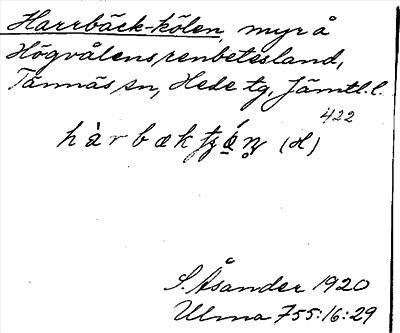 Harrbäck-kölen, myr å
Högvålens renbetesland,
Tännäs sn, Hede tg, Jämtl. l.
422
(H)
S. Åsander 1920
Ulma 755:16:29